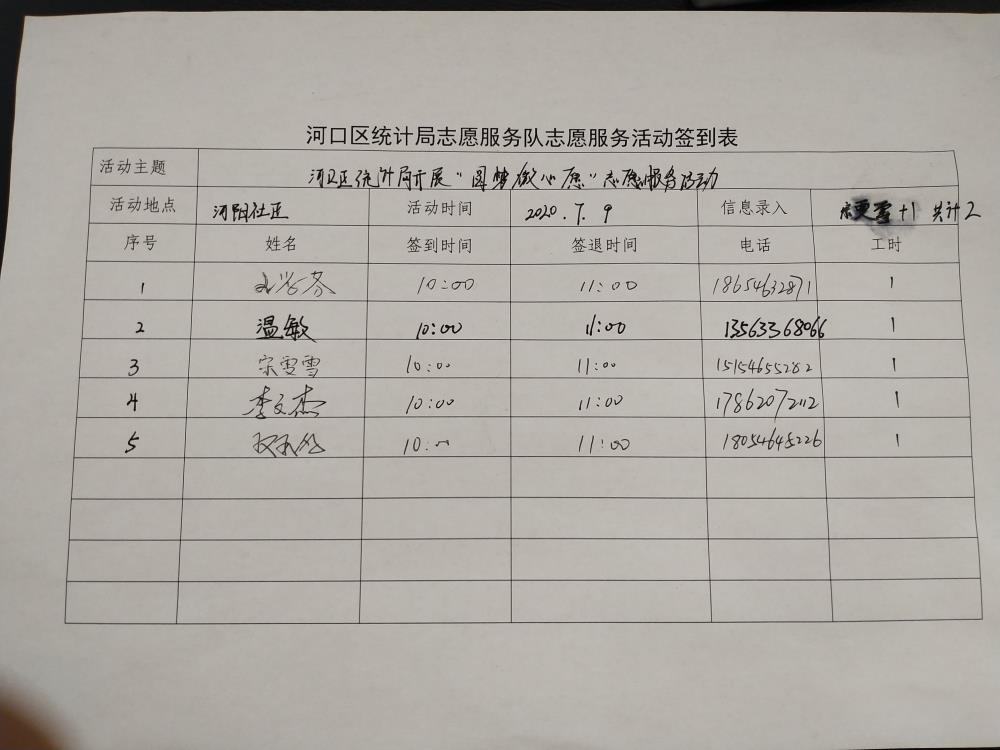 河口区统计局志愿服务队志愿服务活动签到表
活动主题 河口区统计局开展“圆梦微心愿”志愿服务活动
活动地点 河阳社区 活动时间 2020.7.9 信息录入 宋雯雪+1 共计2
序号 姓名 签到时间 签退时间 电话 工时
1 10:00 11:00 18654632871 1
2 温敏 10:00 11:00 13563368066 1
3 宋雯雪 10:00 11:00 15154655282 1
4 李文杰 10:00 11:00 17862072112 1
5 10:00 11:00 18054645226 1